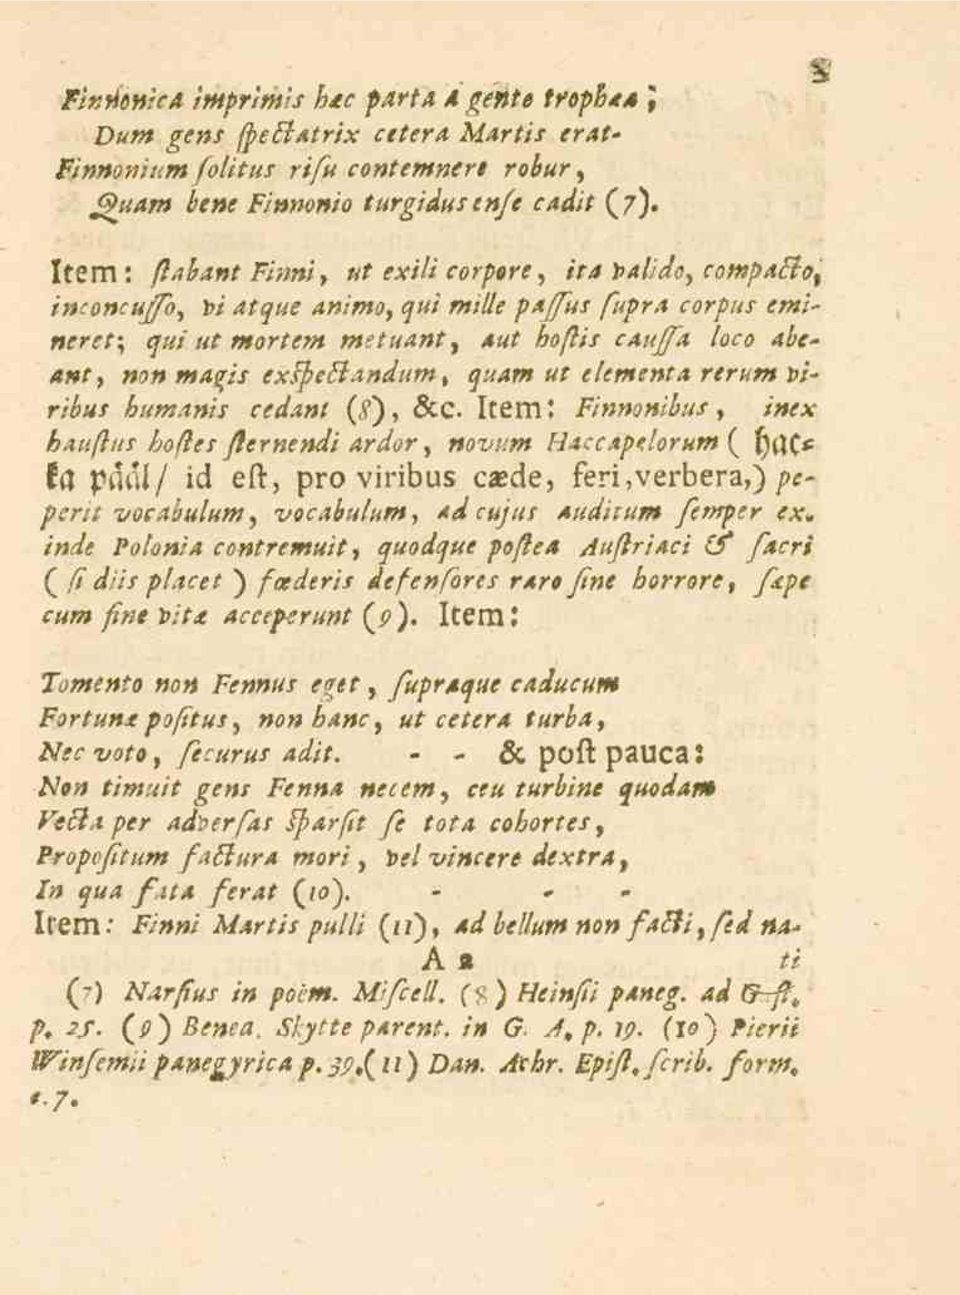 3
Finnonica imprimis hæc parta á gente trophæa;
Dum gens ſpectatrix cetera Martis erat-
Finnonium ſolitus riſu contemnere robur,
Quam bene Finnonio turgidus enſe cadit (7).
Item: ſtabant Finni, ut exili corpore, ita valido, compacto,
inconcuſſo, vi atque animo, qui mille paſſus ſupra corpus emi-
neret; qui ut mortem metuant, aut hoſtis cauſſa loco abe-
ant, non magis exſpectandum, quam ut elementa rerum vi-
ribus humanis cedant (8), &c. Item: Finnonibus, inex
hauſtus hoſtes ſternendi ardor, novum Haccapelorum ( hac-
ka påål/ id eſt, pro viribus cæde, feri,verbera,) pe-
perit vocabulum, vocabulum, ad cujus auditum ſemper ex.
inde Polonia contremuit, quodque poſtea Auſtriaci & ſacri
( ſi diis placet ) fœderis defenſores raro ſine horrore, ſæpe
cum fine vitæ acceperunt (9). Item:
Tomento non Fennus eget, ſupraque caducum
Fortunæ poſitus, non hanc, ut cetera turba,
Nec voto, ſecurus adit. - - & poſt pauca:
Non timuit gens Fenna necem, ceu turbine quodam
Vecta per adverſas ſparſit ſe tota cohortes,
Propoſitum factura mori, vel vincere dextra,
In qua fata ferat (10). - - -
Item: Finni Martis pulli (11), ad bellum non facti, ſed na-
A 2 ti
(7) Narſius in poëm. Miſcell. (8) Heinſii paneg. ad G ſt.
p. 25. (9) Benea. Skytte parent. in G. A. p. 19. (10) Pierii
Winſemii panegyrica p. 39.(11) Dan. Achr. Epiſt. ſcrib. form.
c. 7.